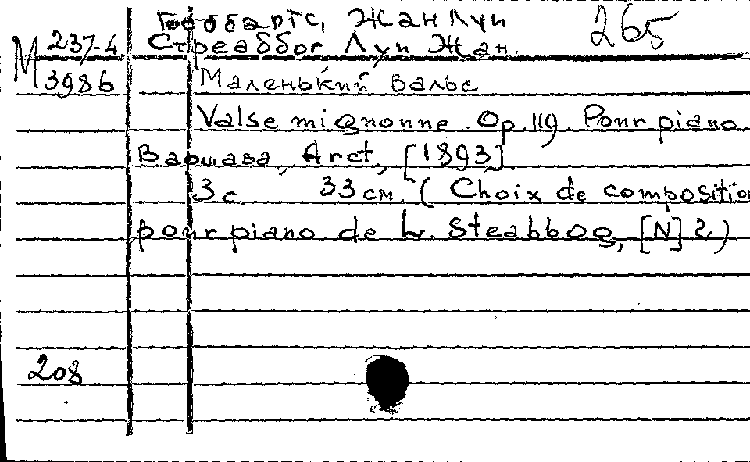 Гоббартс, Жан Луи 265
М 237-4 Стреаббог Луи Жан.
3986 Маленький вальс
Valse mignonne. Op. 119. Pour piano
Варшава, Arct, [1893]
3 с. 33 см. (Choix de compositio
pour piano de L. Steabbog, [N] 2)
208